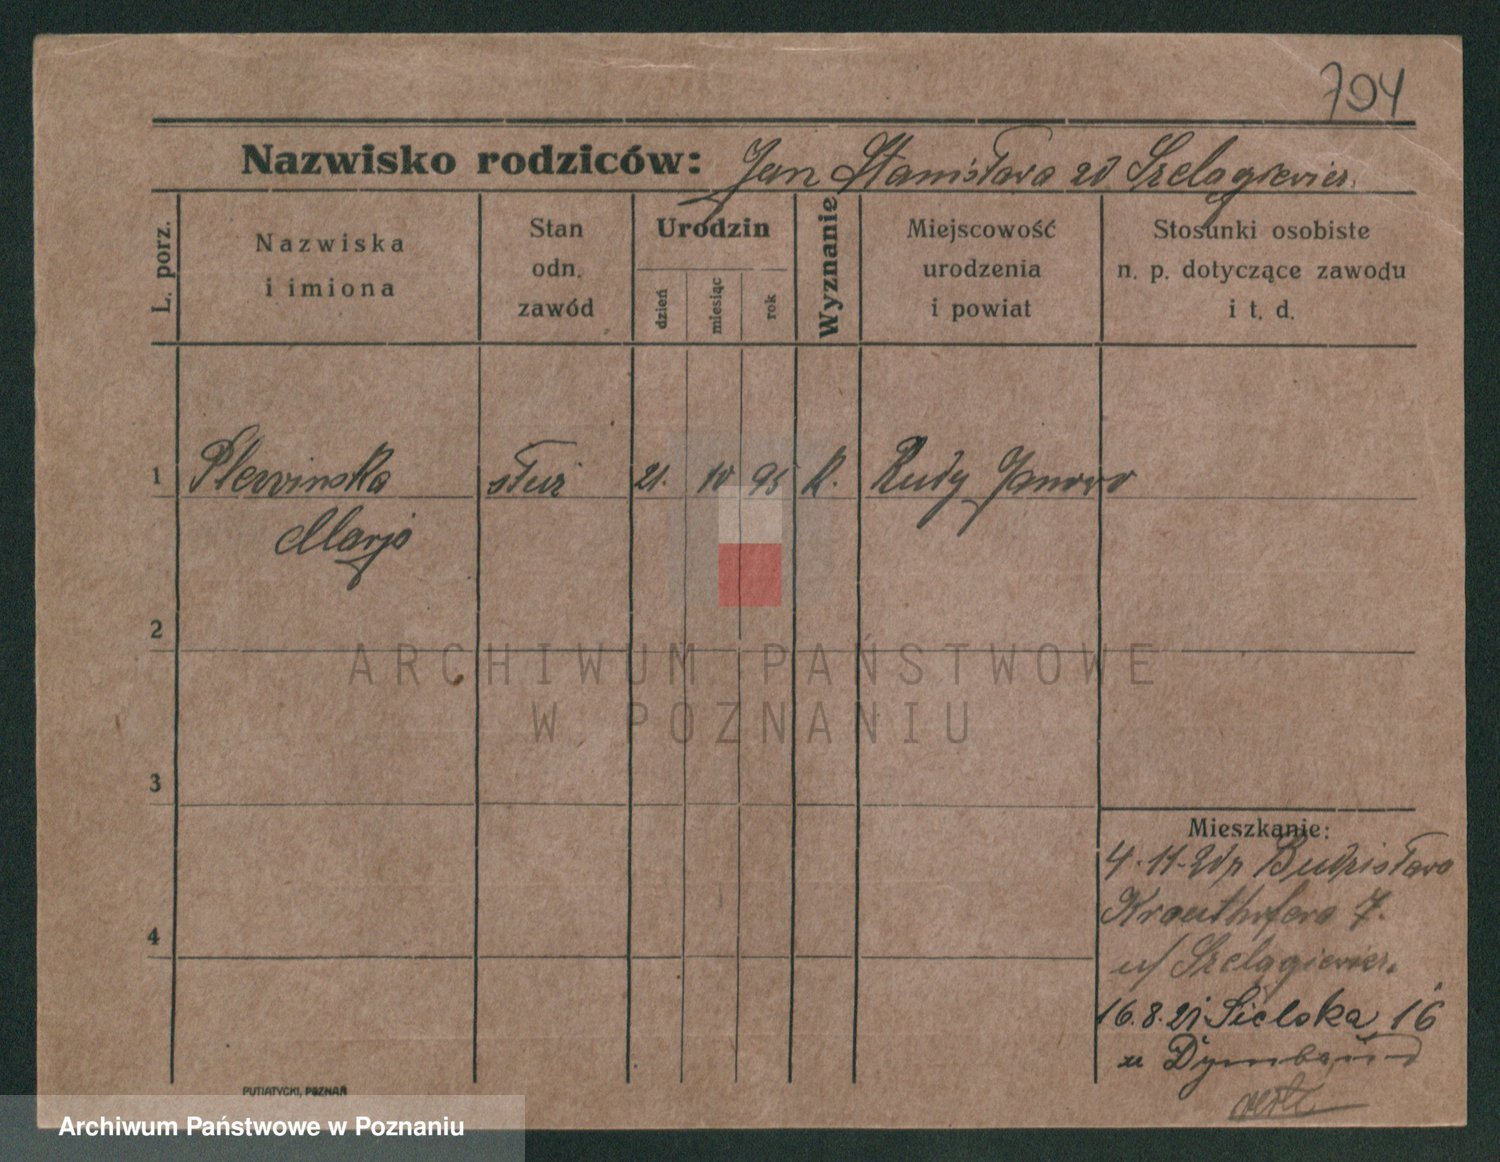 794
Nazwisko rodziców: Jan Stanisława zd Szelągiewicz.
L. porz.
Nazwiska
i imiona
Stan
odn.
zawód
Urodzin
dzień
miesiąc
rok
Wyznanie
Miejscowość
urodzenia
i powiat
Stosunki osobiste
n. p. dotyczące zawodu
i t. d.
1 Plewinska służ 21. 10 95 K. Rudy Janowo
Marja
2
ARCHIWUM PAŃSTWOWE
W POZNANIU
3
Mieszkanie:
4.11.20 z Budzisława
Krauthofera 7.
u/ Szelągiewicz.
4
16.8.21 Sielska 16
u
PUTIATYCKI, POZNAŃ
Archiwum Państwowe w Poznaniu